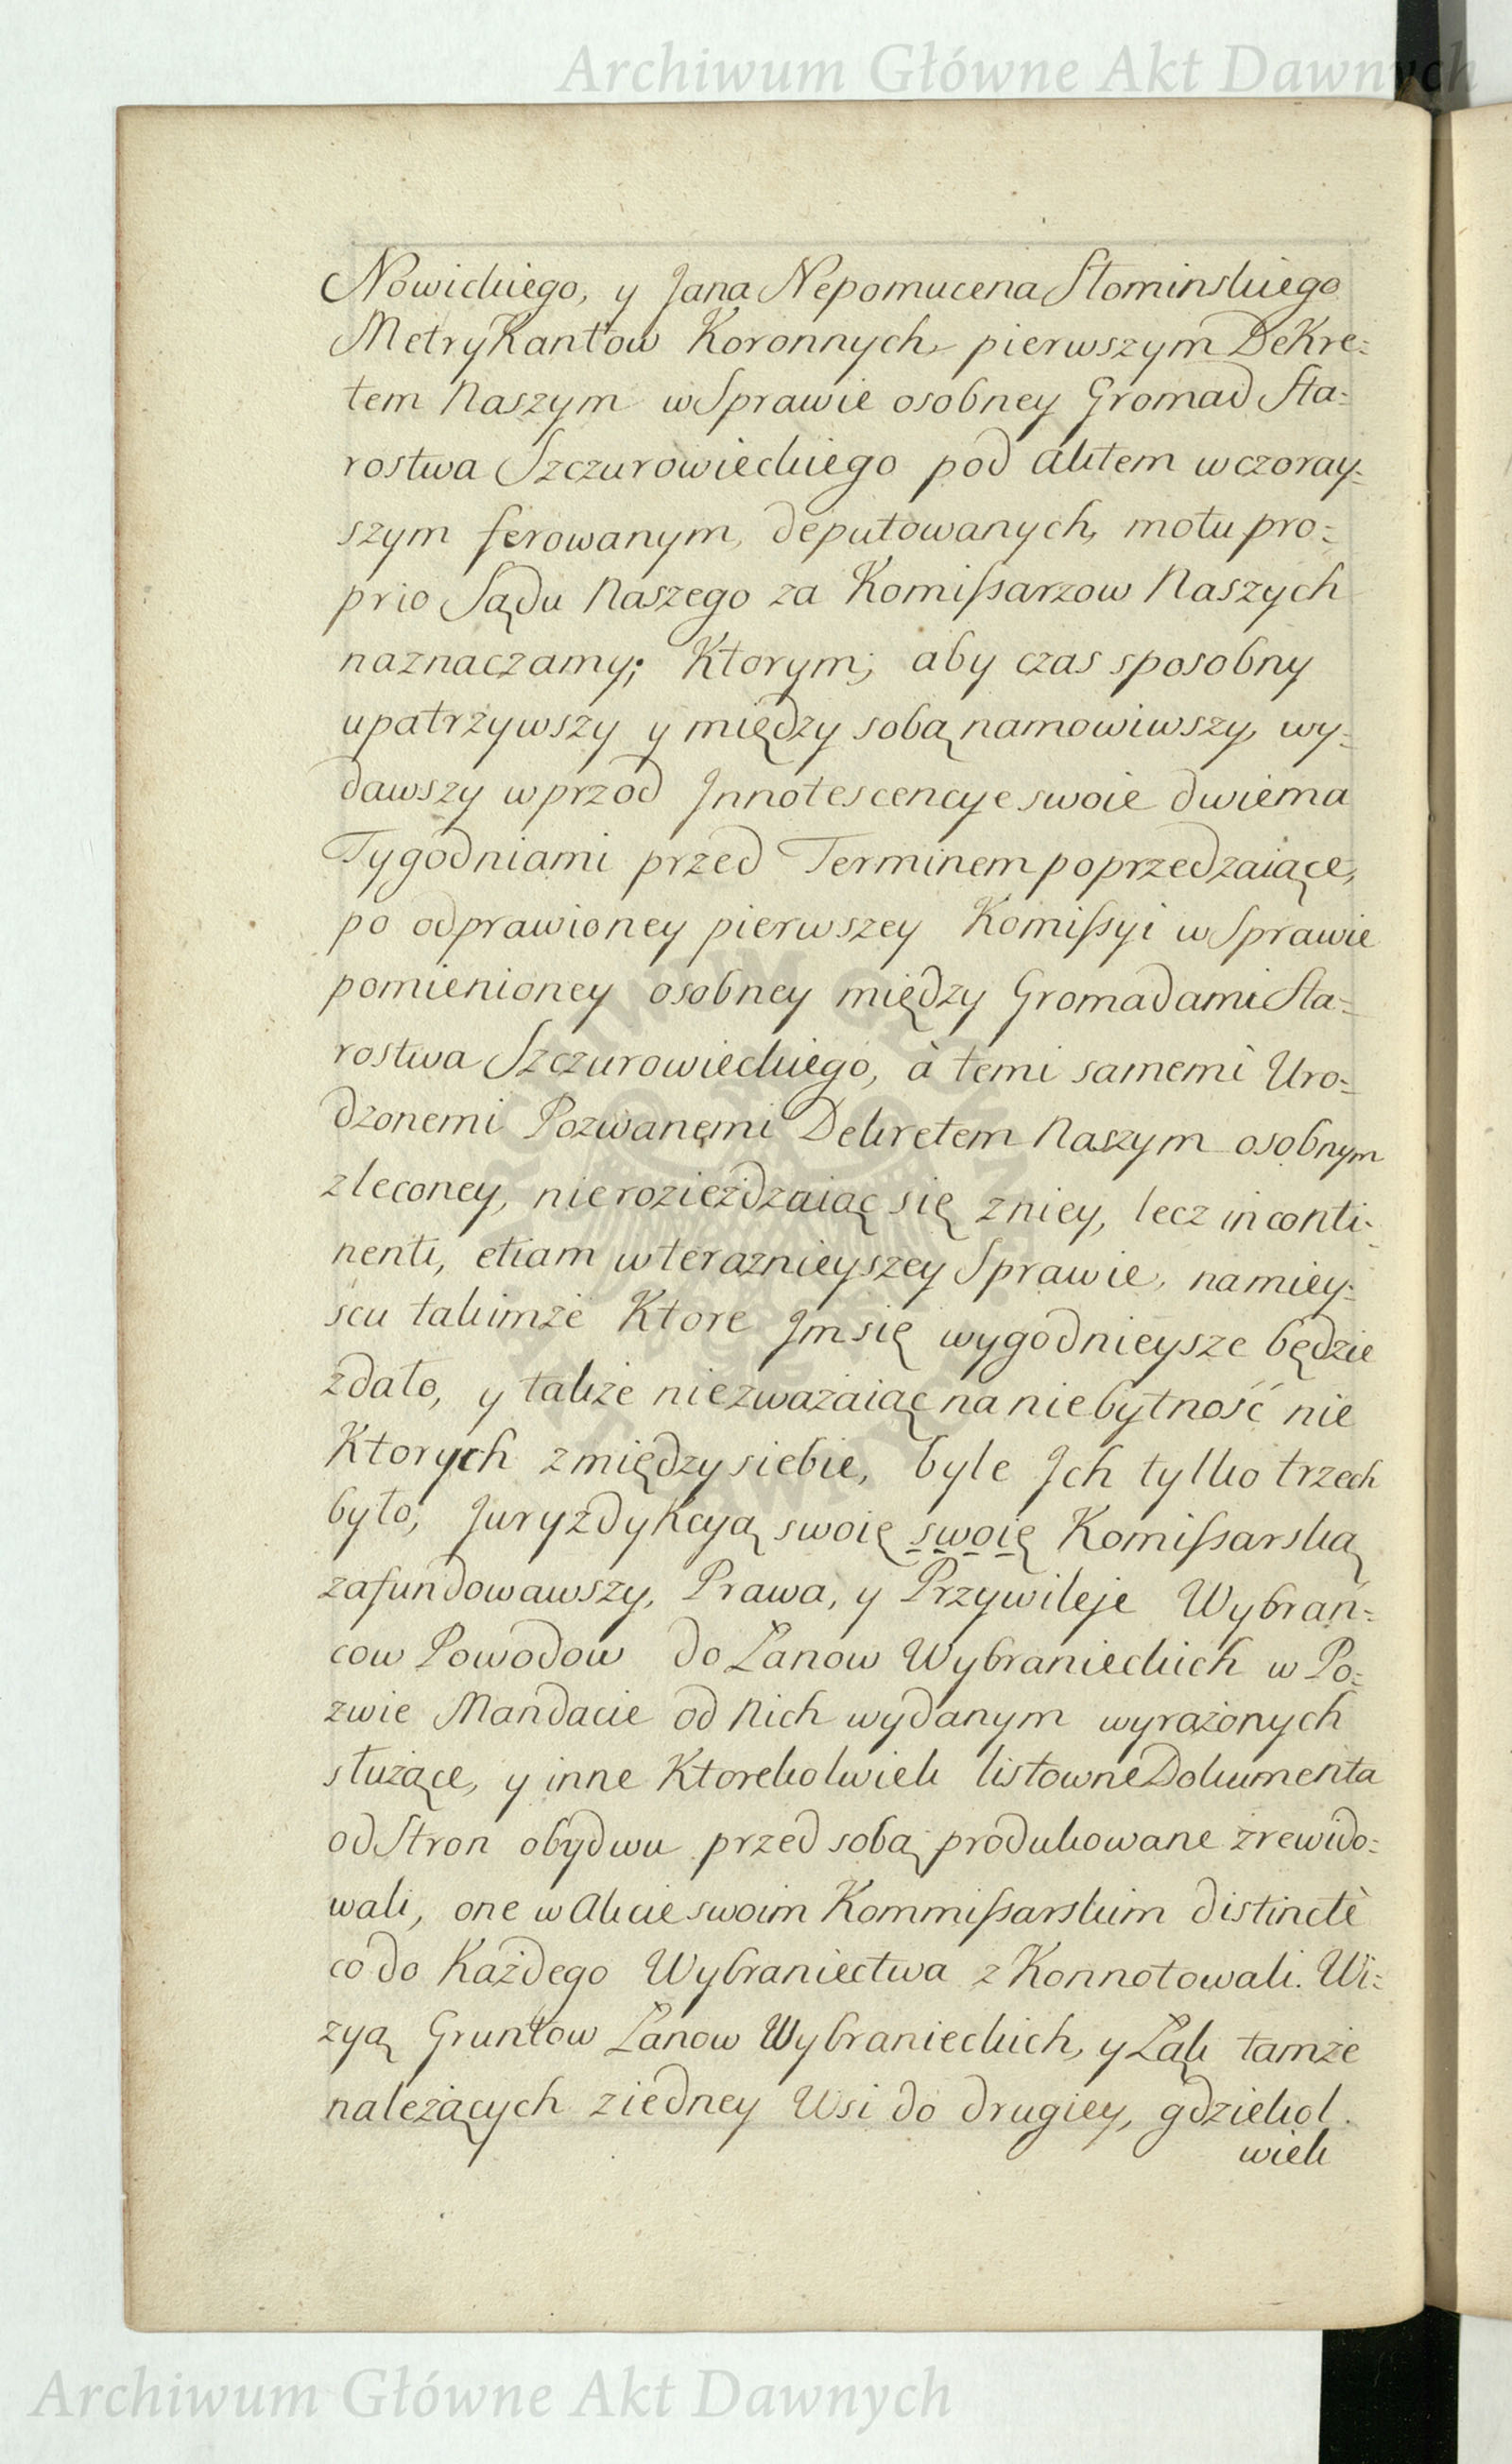 Archiwum Główne Akt Dawnych
Nowickiego, y Jana Nepomucena Słominskiego
Metrykantow Koronnych, pierwszym Dekre=
tem Naszym w Sprawie osobney Gromad Sta=
rostwa Szczurowieckiego pod aktem wczoray=
szym ferowanym, deputowanych, motu pro=
prio Sądu Naszego za Komissarzow Naszych
naznaczamy; Ktorym; aby czas sposobny
upatrzywszy y między sobą namowiwszy, wy=
dawszy wprzod Innotescencye swoie dwiema
Tygodniami przed Terminem poprzedzaiące,
po odprawioney pierwszey Komissyi w Sprawie
pomienioney osobney między Gromadami Sta=
rostwa Szczurowieckiego, à temi samemi Uro=
dzonemi Pozwanemi Dekretem Naszym osobnym
zleconey, nierozieżdzaiąc się zniey, lecz in conti=
nenti, etiam w teraznieyszey Sprawie, na miey=
scu takimże Ktore Im się wygodnieysze będzie
zdało, y także niezważaiąc na niebytność nie
Ktorych z między siebie, byle Ich tylko trzech
było, Juryzdykcyą swoię swoię Komissarską
zafundowawszy, Prawa, y Przywileje Wybrań=
cow Powodow do Łanow Wybranieckich w Po=
zwie Mandacie od Nich wydanym wyrażonych
służące, y inne Ktorekolwiek listowne Dokumenta
od Stron obydwu przed sobą produkowane zrewido=
wali, one w Akcie swoim Kommissarskim distinctè
co do Każdego Wybraniectwa z Konnotowali. Wi=
zyą Gruntow Łanow Wybranieckich, y Łąk tamże
należących z iedney Wsi do drugiey, gdziekol.
wiek
Archiwum Główne Akt Dawnych